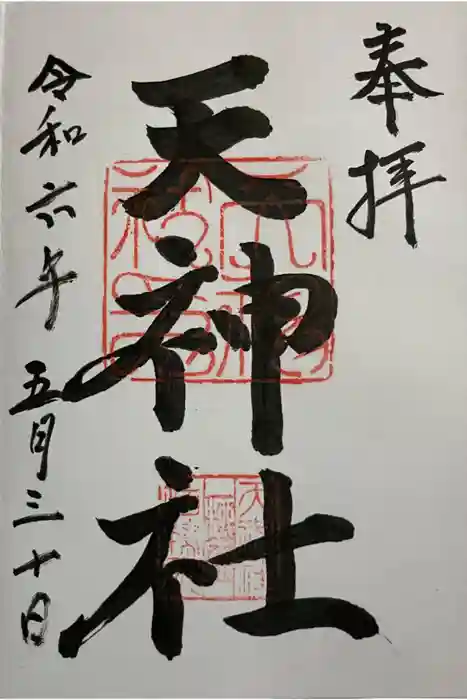 奉拝
天神社
令和六年五月三十日